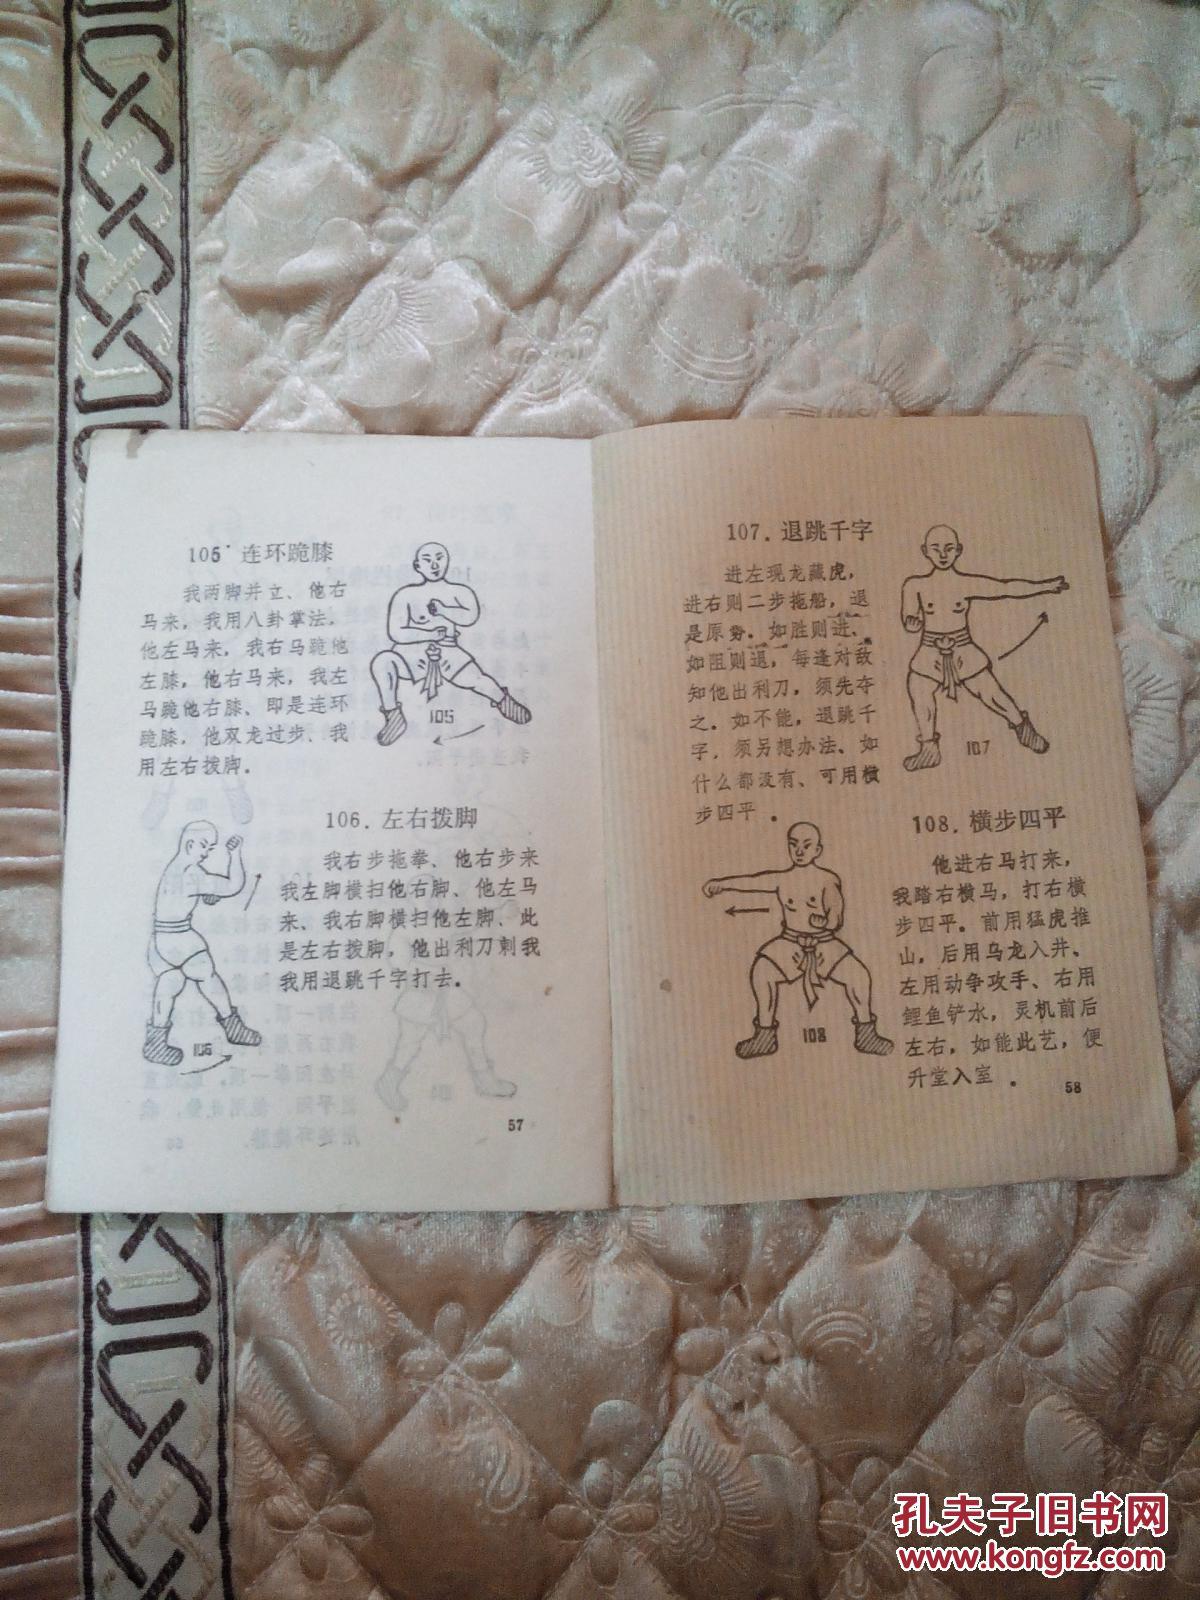 105 连环跪膝
我两脚并立、他右
马来，我用八卦掌法，
他左马来，我右马跪他
左膝，他右马来，我左
马跪他右膝、即是连环
跪膝，他双龙过步、我
用左右拨脚。
105
106．左右拨脚
我右步拖拳、他右步来
我左脚横扫他右脚、他左马
来、我右脚横扫他左脚、此
是左右拨脚，他出利刀刺我
我用退跳千字打去。
106
57
107．退跳千字
进左现龙藏虎，
进右则二步拖船，退
是原势．如胜则进、
如阻则退，每逢对敌
知他出利刀，须先夺
之．如不能，退跳千
字，须另想办法、如
什么都没有、可用横
步四平。
107
108．横步四平
他进右马打来，
我踏右横马，打右横
步四平。前用猛虎推
山，后用乌龙入井、
左用动争攻手、右用
鲤鱼铲水，灵机前后
左右，如能此艺，便
升堂入室。
108
58
孔夫子旧书网
www.kongfz.com